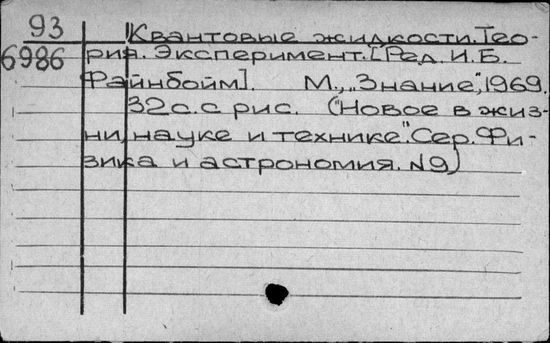 93
6986
Квантовые жидкости. Тео-
рия. Эксперимент. [Ред. И.Б.
Файнбойм]. М., "Знание", 1969.
32 с. с рис. ("Новое в жиз-
ни, науке и технике". Сер. Фи-
зика и астрономия. №9)